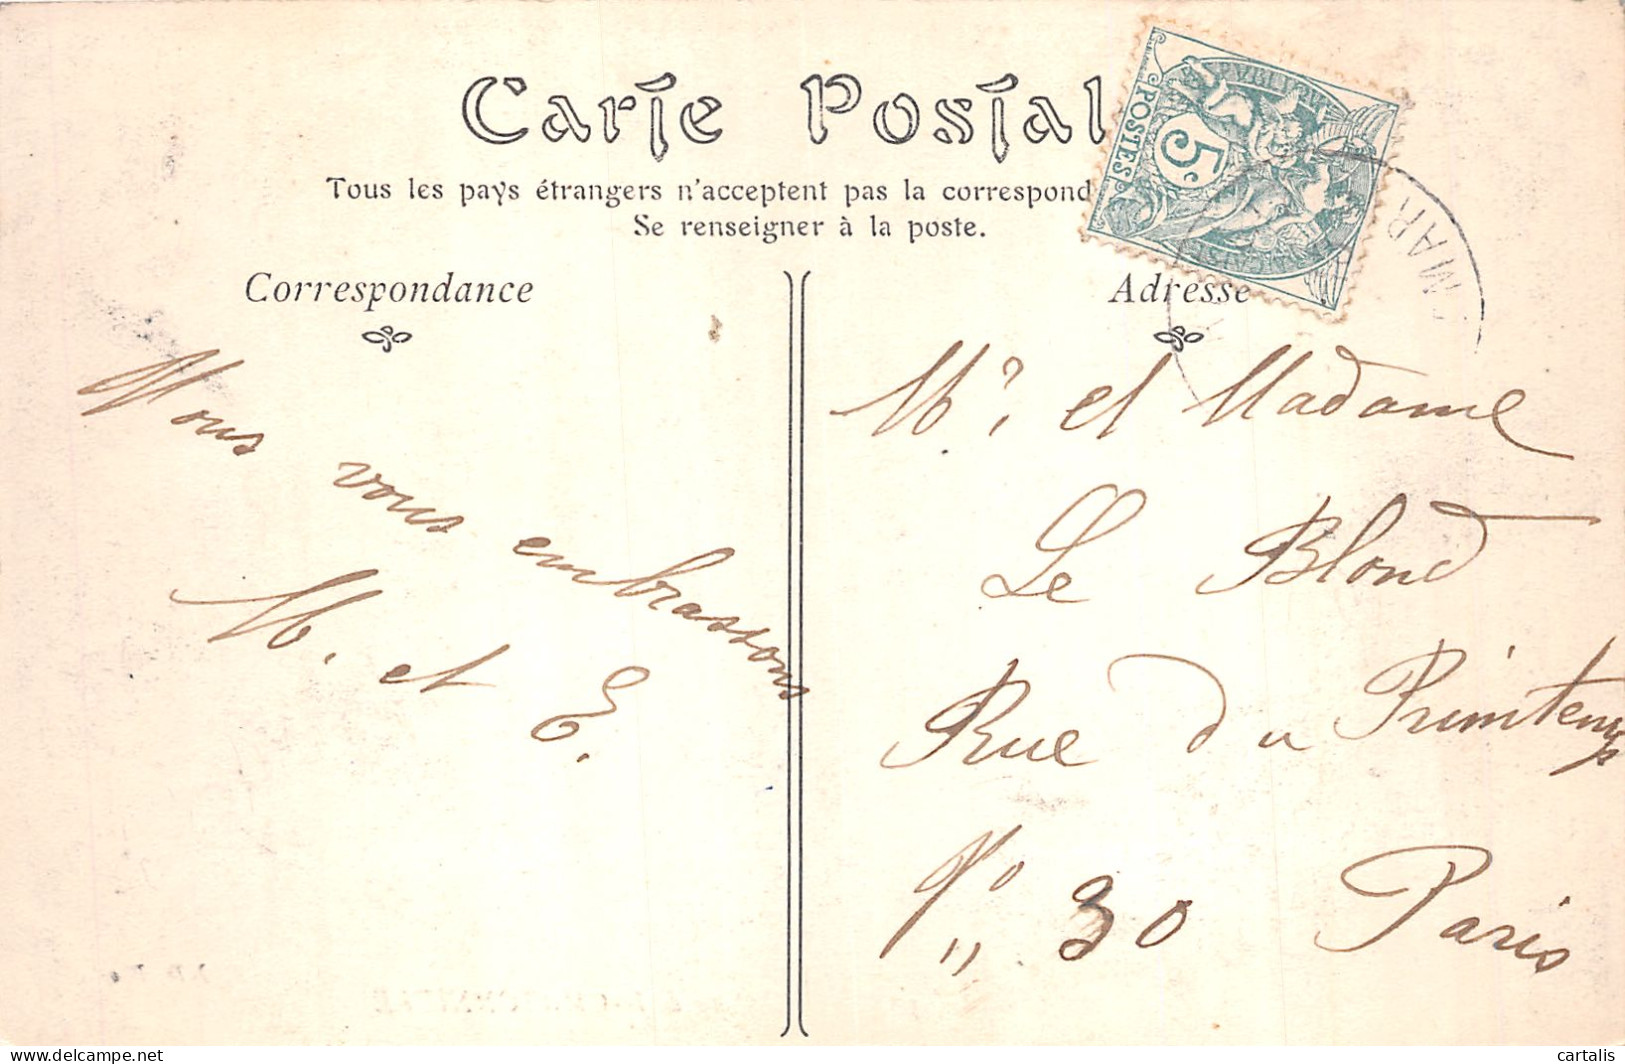 Carte Postal
Tous les pays étrangers n'acceptent pas la correspond
Se renseigner à la poste.
Correspondance
Nous vous embrassons
M. et E.
Adresse
Mr. et Madame
Le Blond
Rue du Printemps
No 30 Paris
POSTES
5c
MAR
delcampe.net
cartalis